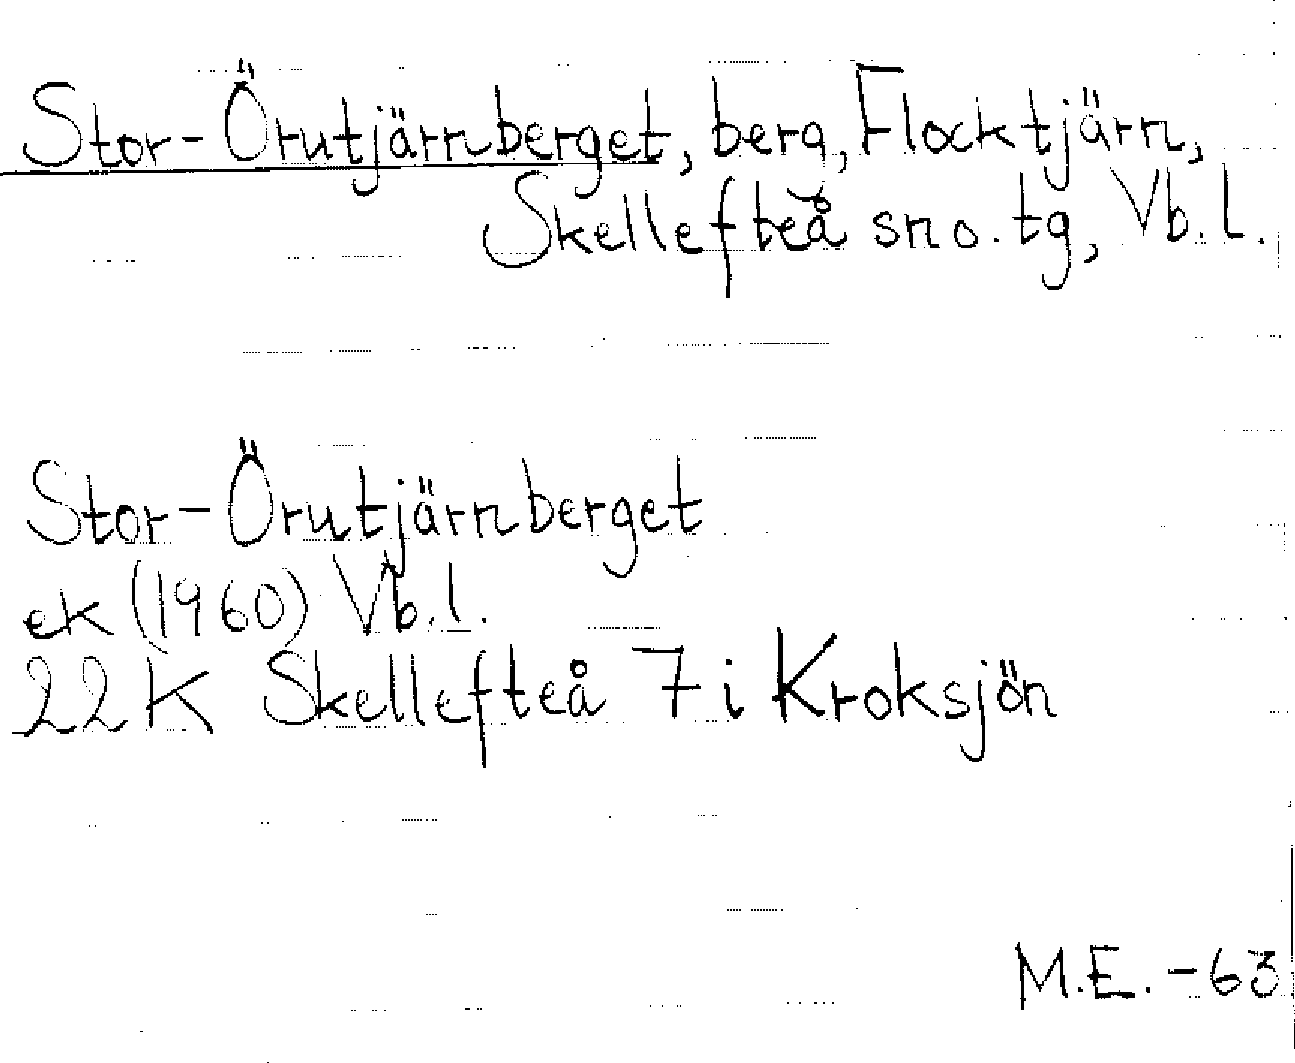 Stor-Örutjärnberget, berg, Flocktjärn,
Skellefteå sn o. tg, Vb. l.
Stor-Örutjärnberget
ek (1960) Vb. l.
22 K Skellefteå 7 i Kroksjön
M.E. -63